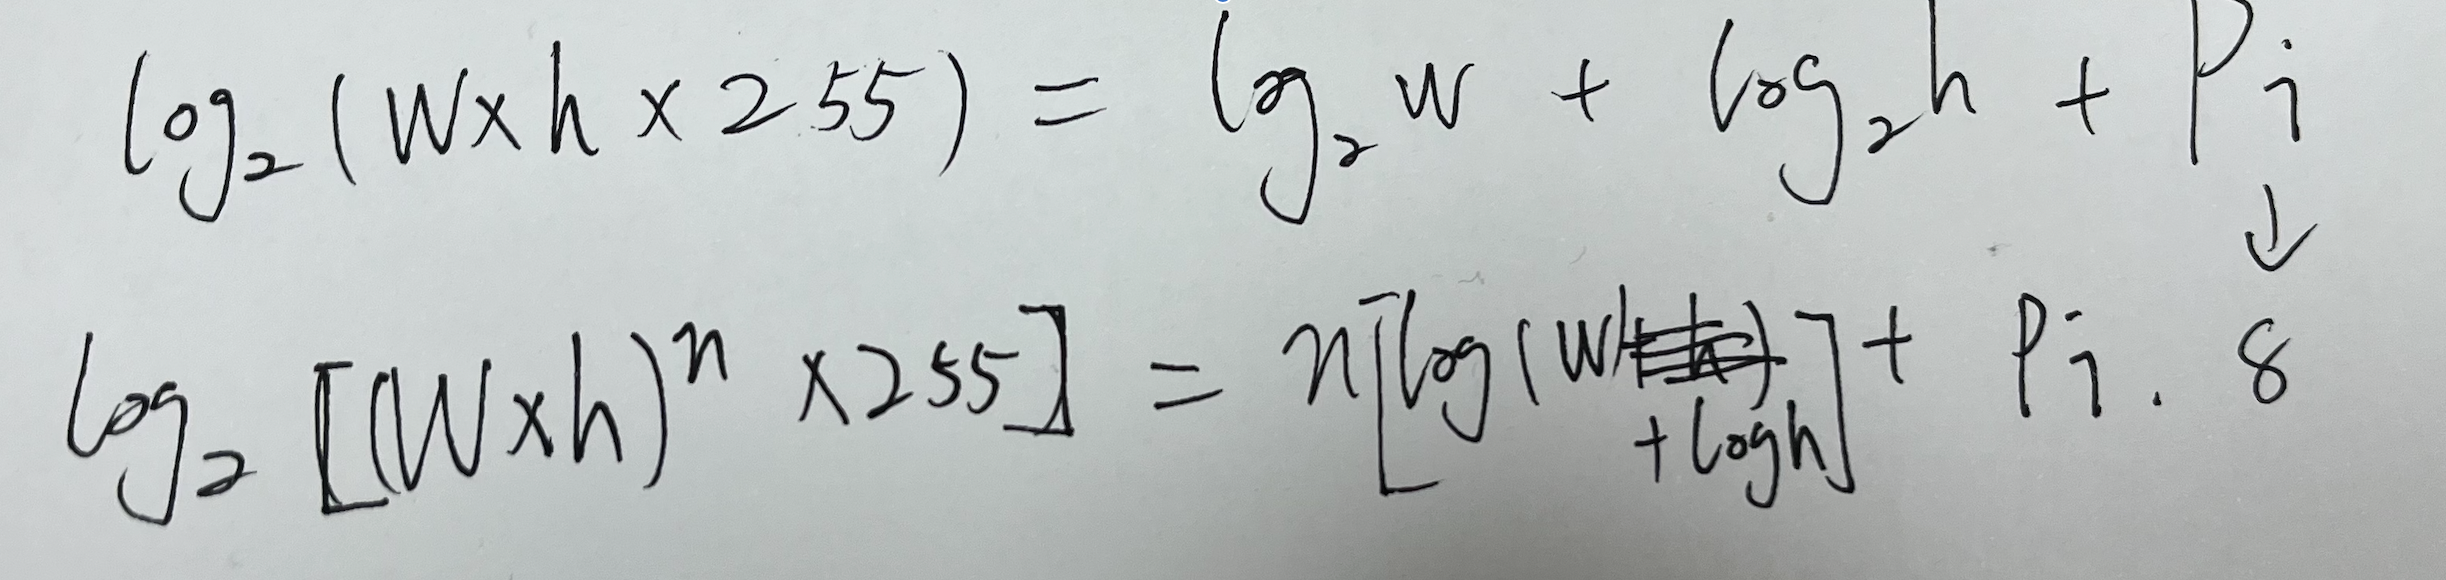 log₂(W×h×255) = log₂w + log₂h + Pi
↓
log₂[(W×h)ⁿ×255] = n[log(W + logh] + Pi. 8